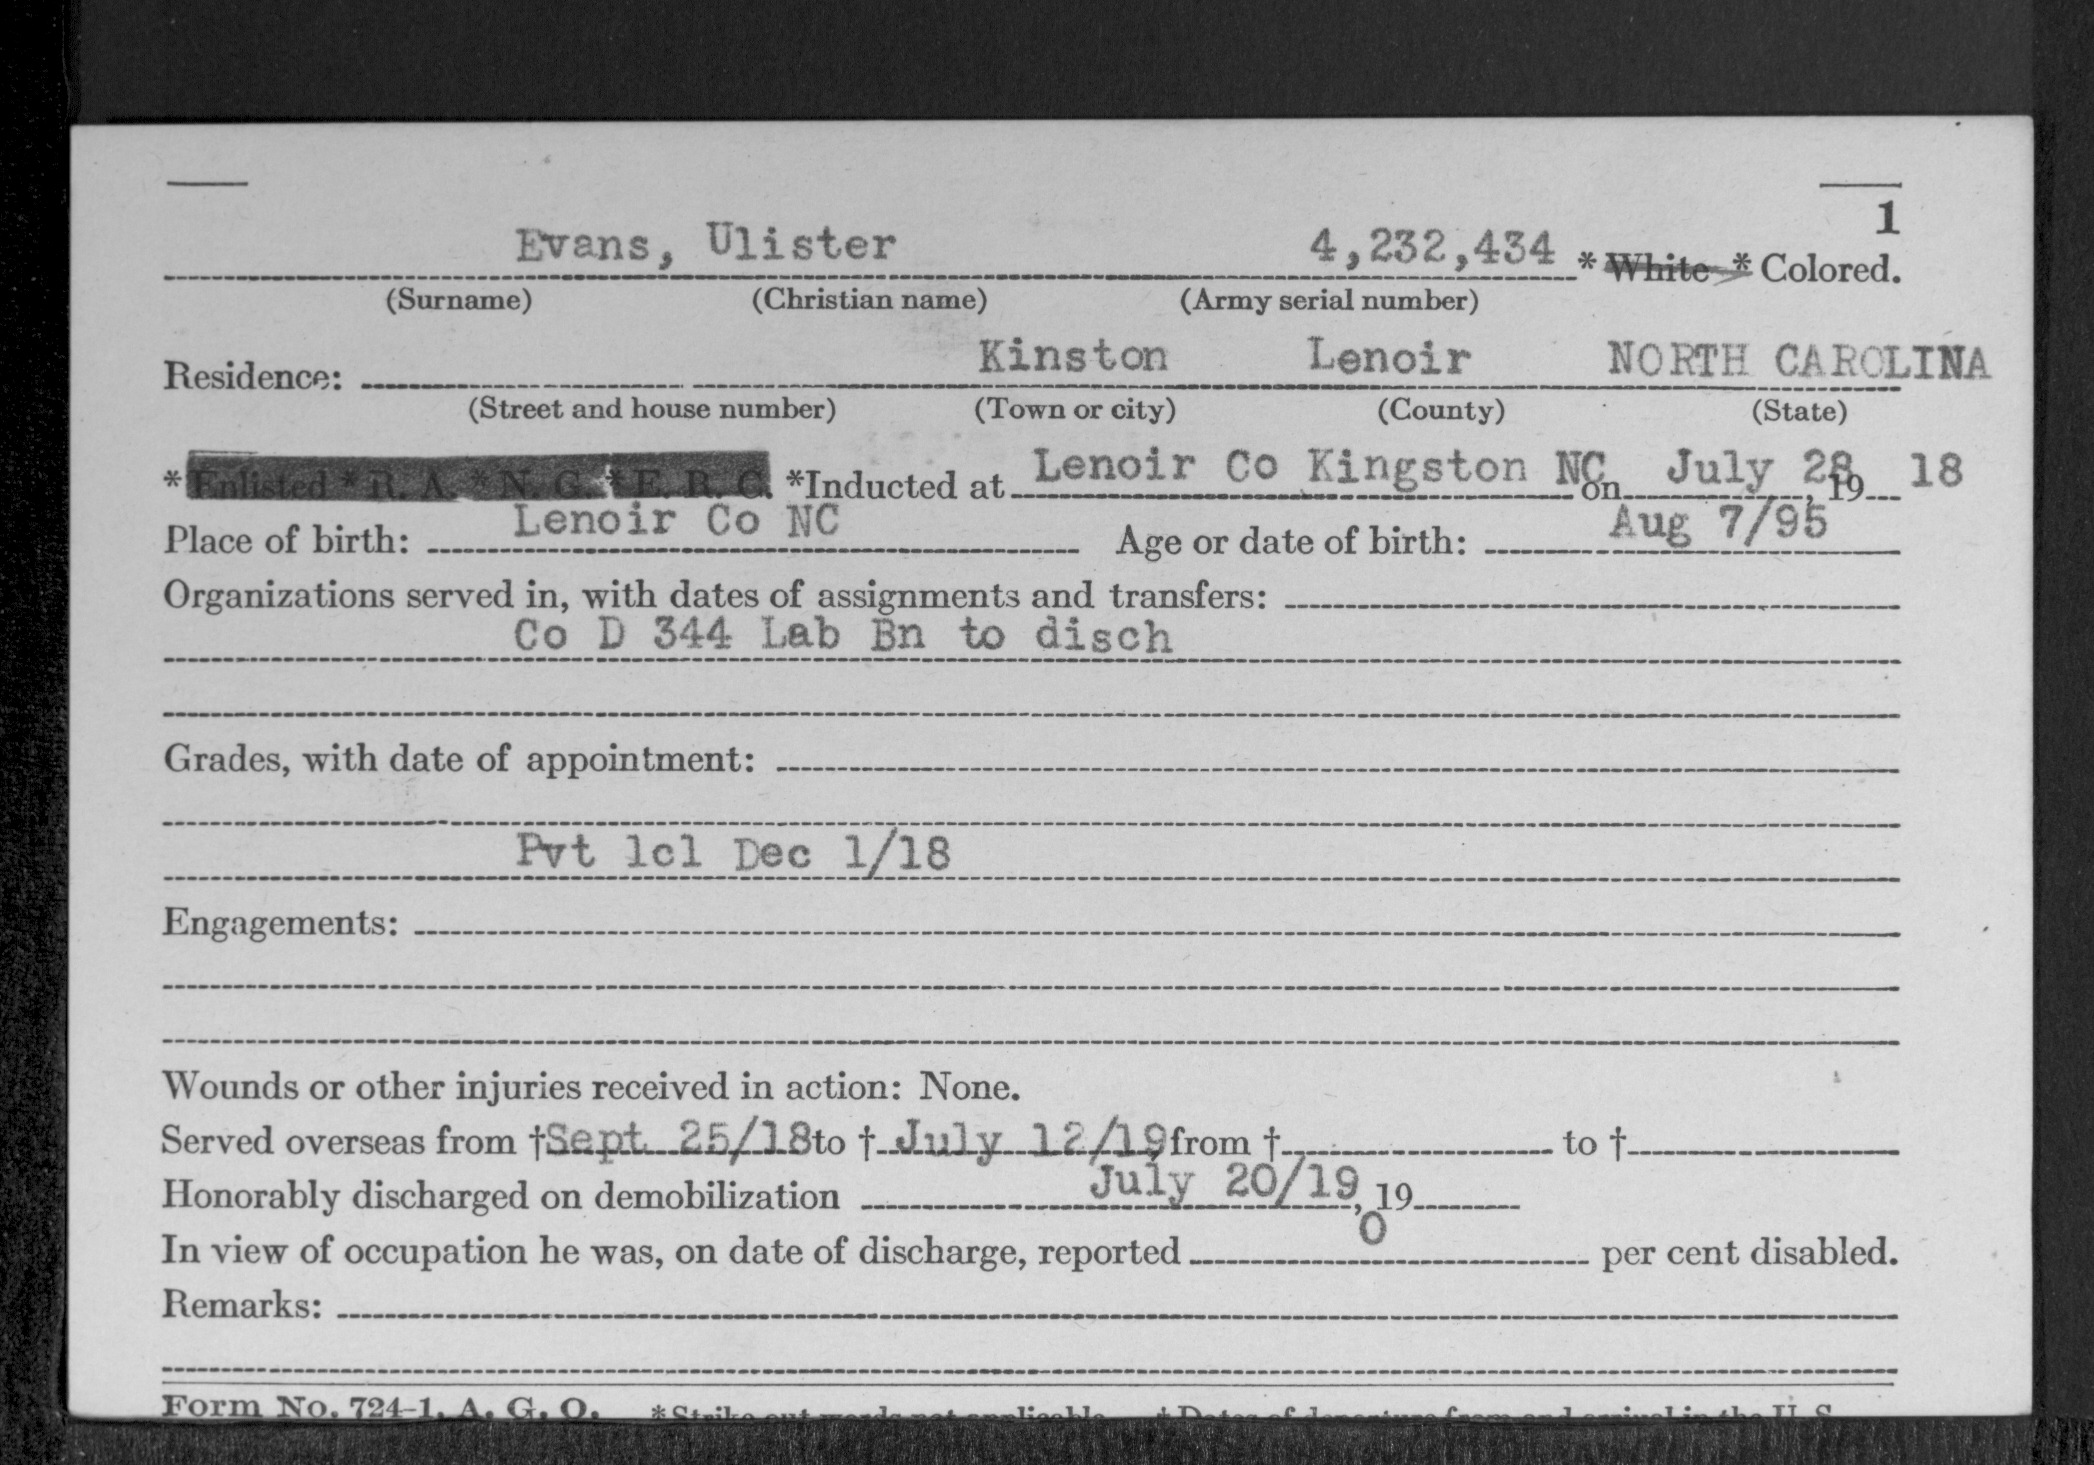 1
Evans, Ulister 4,232,434 * White * Colored.
(Surname) (Christian name) (Army serial number)
Residence: Kinston Lenoir NORTH CAROLINA
(Street and house number) (Town or city) (County) (State)
* Enlisted * R. A. * N. G. * E. R. C. *Inducted at Lenoir Co Kingston NC on July 28, 19 18
Place of birth: Lenoir Co NC Age or date of birth: Aug 7/95
Organizations served in, with dates of assignments and transfers:
Co D 344 Lab Bn to disch
Grades, with date of appointment:
Pvt 1cl Dec 1/18
Engagements:
Wounds or other injuries received in action: None.
Served overseas from † Sept 25/18 to † July 12/19 from † to †
Honorably discharged on demobilization July 20/19, 19
In view of occupation he was, on date of discharge, reported 0 per cent disabled.
Remarks:
Form No. 724-1, A. G. O. *Strike out words not applicable. † Dates of departure from and arrival in the U. S.